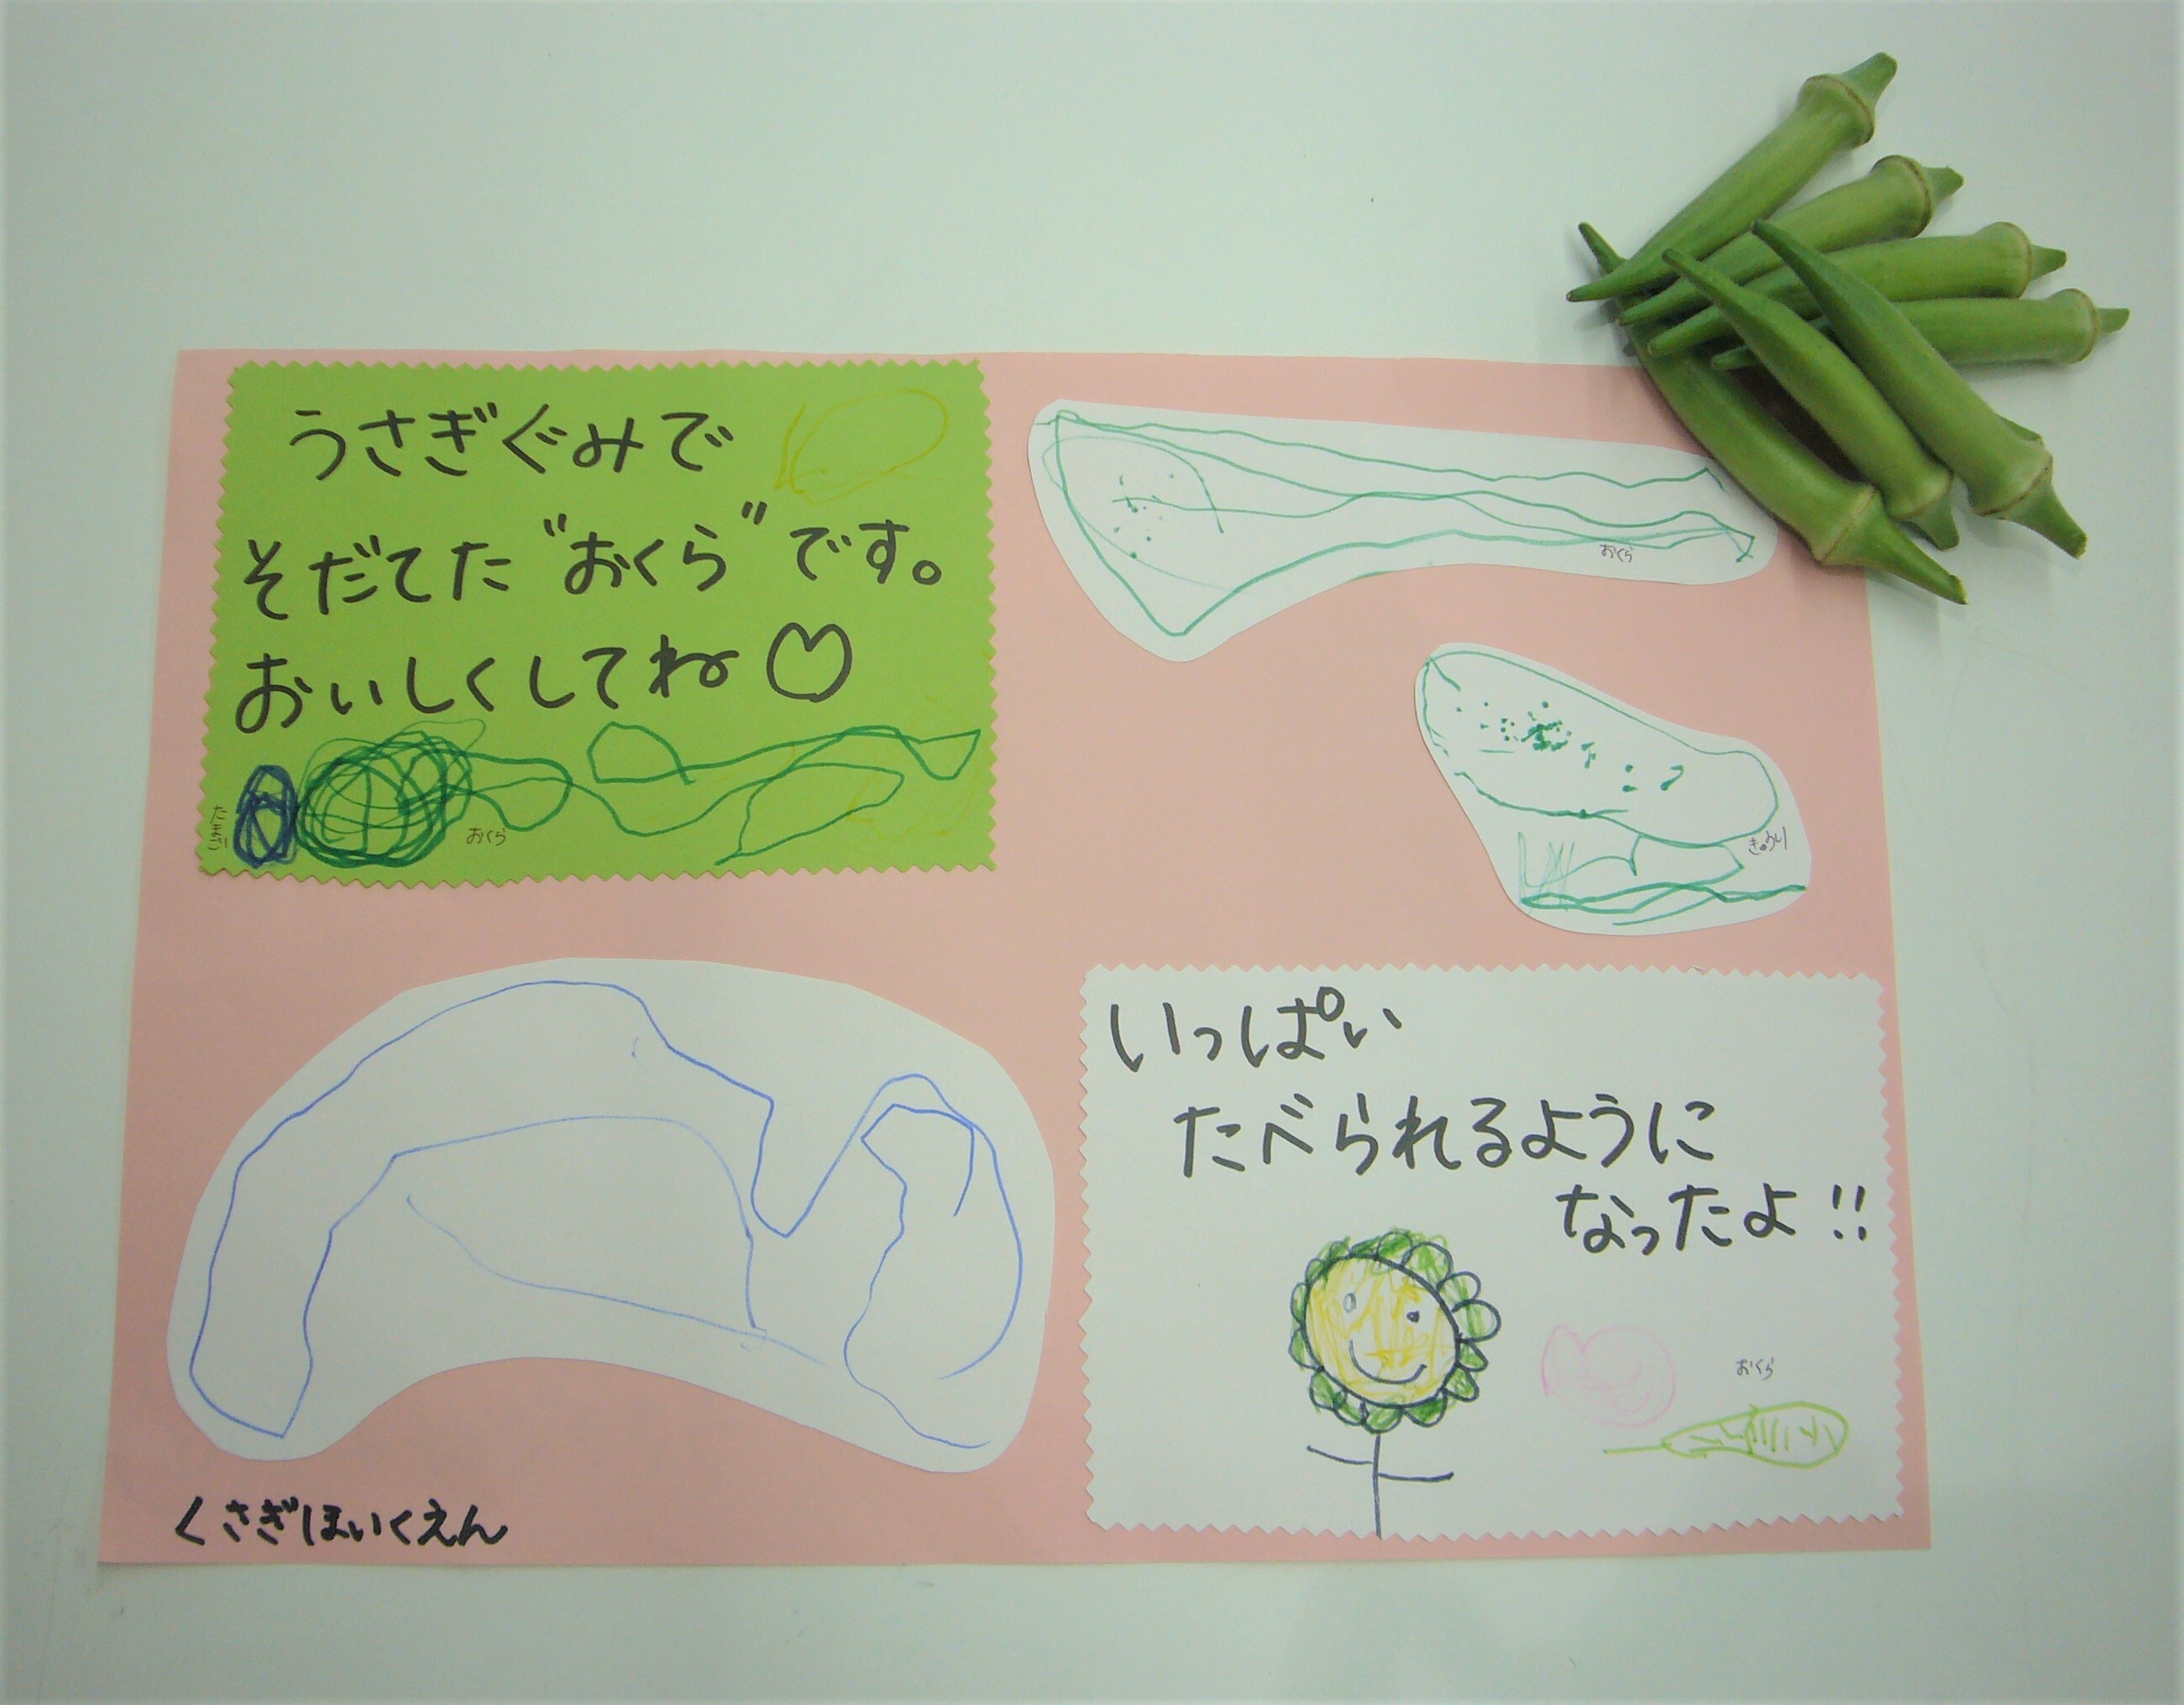 うさぎぐみで
そだてた"おくら"です。
おいしくしてね♡
おくら
おくら
きゅうり
いっぱい
たべられるように
なったよ!!
おくら
くさぎほいくえん